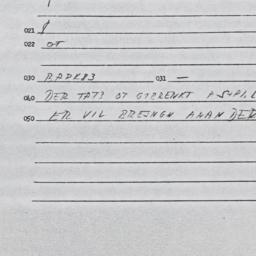 021
022 OT
030 RADK83 031 —
040 DER TATS OT GEBRENKT A
050 ER VIL BREJNGN AHAN DER